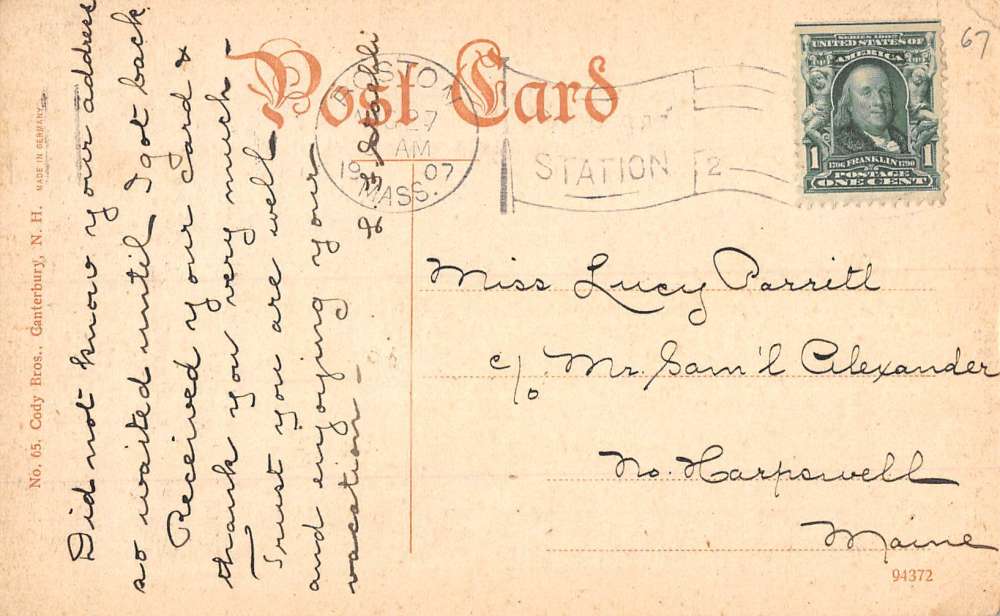 Post Card
BOSTON
27
AM
1907
MASS.
STATION
2
SERIES 1902
UNITED STATES OF
AMERICA
1706 FRANKLIN 1790
1 1
POSTAGE
ONE CENT
67
Did not know your address
so waited until I got back
Received your card &
thank you very much -
Trust you are well
and enjoying your
vacation -
Miss Lucy Parritt
c/o Mr. Sam'l Alexander
No. Harpswell
Maine
No. 65. Cody Bros., Canterbury, N. H. MADE IN GERMANY
94372